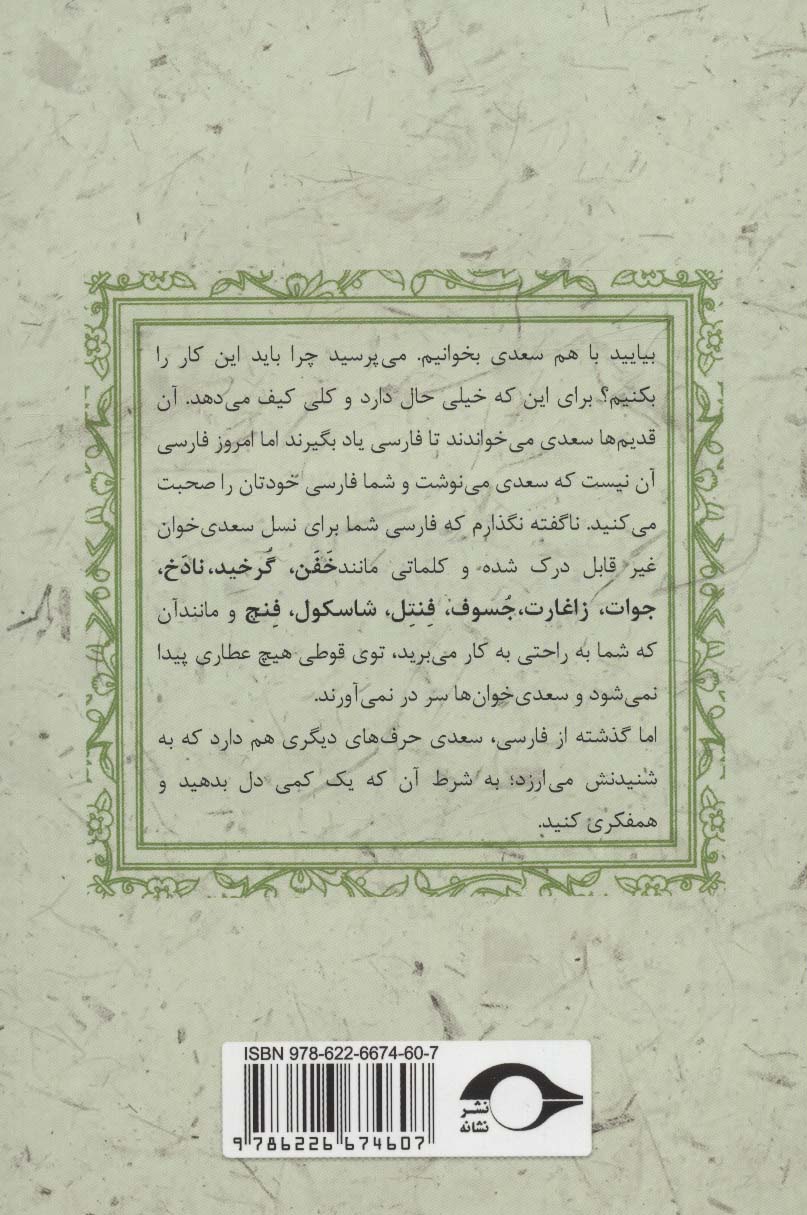 بیایید با هم سعدی بخوانیم. می‌پرسید چرا باید این کار را
بکنیم؟ برای این که خیلی حال دارد و کلی کیف می‌دهد. آن
قدیم‌ها سعدی می‌خواندند تا فارسی یاد بگیرند اما امروز فارسی
آن نیست که سعدی می‌نوشت و شما فارسی خودتان را صحبت
می‌کنید. ناگفته نگذارم که فارسی شما برای نسل سعدی‌خوان
غیر قابل درک شده و کلماتی مانندخَفَن، گُرخید،نادَخ،
جوات، زاغارت،جُسوف، فِنتِل، شاسکول، فِنچ و مانندآن
که شما به راحتی به کار می‌برید، توی قوطی هیچ عطاری پیدا
نمی‌شود و سعدی‌خوان‌ها سر در نمی‌آورند.
اما گذشته از فارسی، سعدی حرف‌های دیگری هم دارد که به
شنیدنش می‌ارزد؛ به شرط آن که یک کمی دل بدهید و
همفکری کنید.
ISBN 978-622-6674-60-7
9 786226 674607
نشر
نشانه